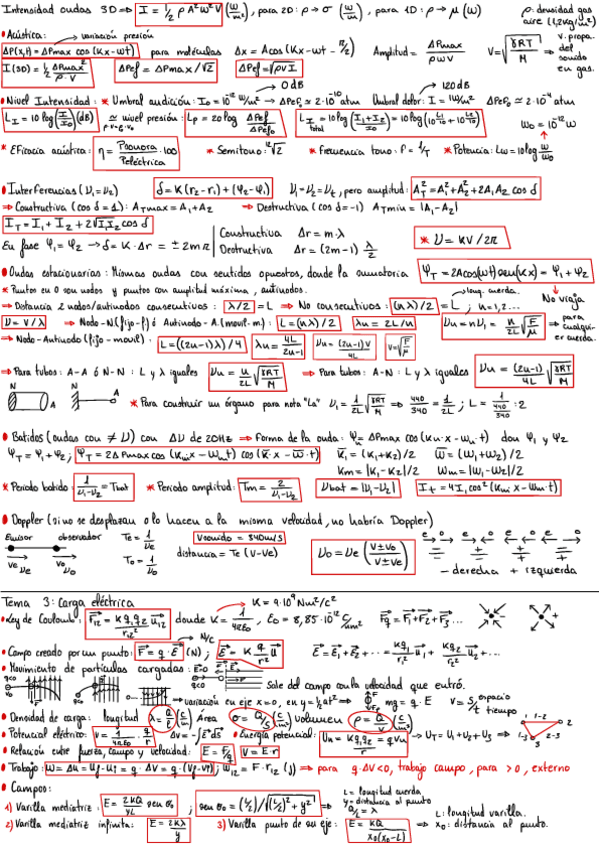 Intensidad ondas 3D ⇒ I = 1/2 ρ A² w² V (w/m²), para 2D: ρ → σ (w/m), para 1D: ρ → μ (w)
ρ: densidad gas
aire (1,2 kg/m³)
• Acústica: variación presión
ΔP(x,t) = ΔPmax cos (Kx - wt) para moléculas Δx = A cos (Kx - wt - π/2) Amplitud = ΔPmax/ρωV V = √(γRT/M) → v. propa. del sonido en gas.
I (3D) = 1/2 ΔPmax²/ρ·V ΔPef = ΔPmax/√2 ΔPef = √ρVI
• Nivel Intensidad: * Umbral audición: I₀ = 10⁻¹² W/m² → ΔPef₀ ≃ 2·10⁻¹⁰ atm 0 dB Umbral dolor: I = 1 W/m² ΔPef₀ ≃ 2·10⁻⁴ atm 120 dB
L_I = 10 log (I/I₀) (dB) ≃ nivel presión: Lp = 20 log ΔPef/ΔPef₀ L_I total = 10 log (I₁+I₂/I₀) = 10 log (10^(L1/10) + 10^(L2/10))
W₀ = 10⁻¹² W
* Eficacia acústica: η = Psonora/Peléctrica · 100 * Semitono: ¹²√2 * Frecuencia tono: f = 1/T * Potencia: Lw = 10 log W/W₀
• Interferencias (ν₁=ν₂) δ = K (r₂ - r₁) + (φ₂ - φ₁) ν₁ = ν₂ = νt, pero amplitud: A_T² = A₁² + A₂² + 2A₁A₂ cos δ
⇒ Constructiva (cos δ = 1): A_T max = A₁ + A₂ → Destructiva (cos δ = -1) A_T min = |A₁ - A₂|
I_T = I₁ + I₂ + 2√I₁I₂ cos δ
En fase φ₁ = φ₂ → δ = K · Δr = ± 2mπ
Constructiva Δr = m·λ
Destructiva Δr = (2m-1) λ/2
* ν = KV/2π
• Ondas estacionarias: Mismas ondas con sentidos opuestos, donde la sumatoria Ψ_T = 2A cos(wt) sen(Kx) = Ψ₁ + Ψ₂
* Puntos en 0 son nodos y puntos con amplitud máxima, antinodos.
No viaja
⇒ Distancia 2 nodos/antinodos consecutivos: λ/2 = L ⇒ No consecutivos: (nλ)/2 = L; n = 1,2... long. cuerda.
ν = V/λ ⇒ Nodo-N (fijo-f) ó Antinodo-A (movil-m): L = (nλ)/2 λn = 2L/n νn = nν₁ = n/2L √(F/μ) ⇒ para cualquier cuerda.
⇒ Nodo-Antinodo (fijo-movil): L = ((2n-1)λ)/4 λn = 4L/2n-1 νn = (2n-1)V/4L V = √(F/μ)
⇒ Para tubos: A-A ó N-N: L y λ iguales νn = n/2L √(γRT/M) ⇒ Para tubos: A-N: L y λ iguales νn = (2n-1)/4L √(γRT/M)
N A N A
* Para construir un órgano para nota "La" ν₁ = 1/2L √(γRT/M) ⇒ 440/340 = 1/2L; L = 1/(440/340) : 2
• Batidos (ondas con ≠ ν) con Δν de 20Hz ⇒ Forma de la onda: Ψn = ΔPmax cos (Kn·x - wn·t) don Ψ₁ y Ψ₂
Ψ_T = Ψ₁ + Ψ₂; Ψ_T = 2ΔPmax cos (Km x - wm t) cos (K̄·x - w̄·t) K̄ = (K₁+K₂)/2 w̄ = (w₁+w₂)/2
Km = |K₁-K₂|/2 wm = |w₁-w₂|/2
* Periodo batido: 1/ν₁-ν₂ = Tbat * Periodo amplitud: Tm = 2/ν₁-ν₂ νbat = |ν₁-ν₂| I_t = 4I₁ cos² (Km·x - wm·t)
• Doppler (si no se desplazan o lo hacen a la misma velocidad, no habría Doppler)
Emisor observador Te = 1/νe Vsonido = 340 m/s
νe Ve ν₀ V₀ T₀ = 1/ν₀ distancia = Te (V - Ve) ν₀ = νe (V ± V₀ / V ± Ve)
- derecha + izquierda
Tema 3: Carga eléctrica K = 9·10⁹ Nm²/C²
• Ley de Coulomb: F₁₂ = K q₁ q₂/r₁₂² u₁₂ donde K = 1/4πε₀, ε₀ = 8,85·10⁻¹² C/Nm² Fq = F₁ + F₂ + F₃...
• Campo creado por un punto: F = q·E (N); E = K q/r² u N/C E = E₁ + E₂ + ... = Kq₁/r₁² u₁ + Kq₂/r₂² u₂ + ...
• Movimiento de partículas cargadas: E=0 Sale del campo con la velocidad que entró.
q<0 q>0 → variación en eje x = 0, en y = 1/2 at² mg = q·E V = s/t espacio tiempo
• Densidad de carga: longitud λ = Q/L (C/m) Area σ = Q/S (C/m²) volumen ρ = Q/V (C/m³)
• Potencial eléctrico: V = 1/4πε₀ q/r ΔV = -∫E dS • Energía potencial: Un = K q₁q₂/r = qVn → U_T = U₁ + U₂ + U₃
• Relación entre fuerza, campo y velocidad: E = F/q V = E·r
• Trabajo: W = Δu = Uf - Ui = q·ΔV = q·(Vf - Vi); W₁₂ = F·r₁₂ (J) ⇒ para q·ΔV<0, trabajo campo, para > 0, externo
• Campos:
1) Varilla mediatriz: E = 2KQ/yL sen θ₀; sen θ₀ = (L/2)/√((L/2)² + y²) ⇒ L = longitud cuerda y = distancia al punto Q/L = λ
2) Varilla mediatriz infinita: E = 2Kλ/y 3) Varilla punto de su eje: E = KQ/x₀(x₀-L) ⇒ L: longitud varilla. x₀: distancia al punto.